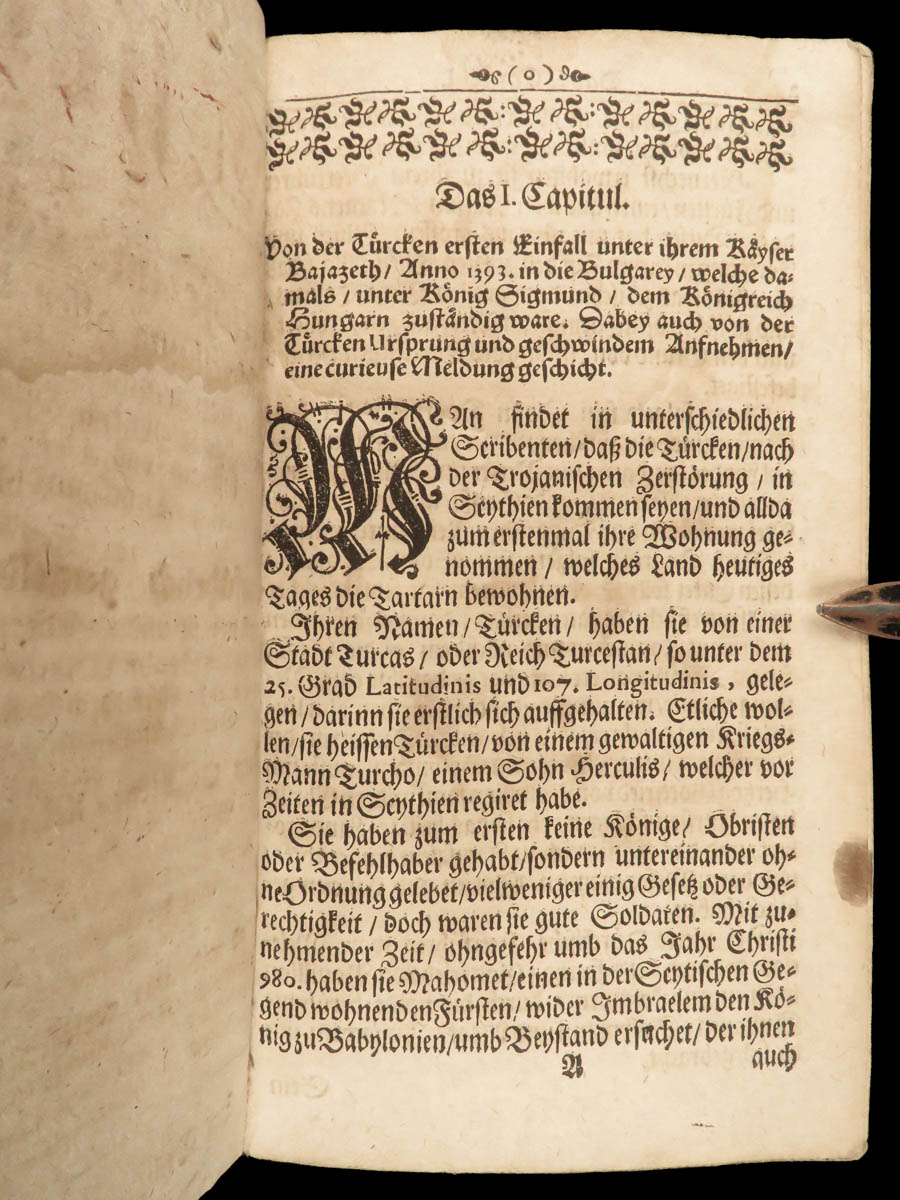 ( o )
Das I. Capitul.
Von der Türcken ersten Einfall unter ihrem Käyser
Bajazeth/ Anno 1393. in die Bulgarey/ welche da-
mals / unter König Sigmund / dem Königreich
Hungarn zuständig ware. Dabey auch von der
Türcken Ursprung und geschwindem Anfnehmen/
eine curieuse Meldung geschicht.
MAn findet in unterschiedlichen
Scribenten/daß die Türcken/nach
der Trojanischen Zerstörung / in
Scythien kommen seyen/und allda
zum erstenmal ihre Wohnung ge-
nommen / welches Land heutiges
Tages die Tartarn bewohnen.
Ihren Namen/Türcken/ haben sie von einer
Stadt Turcas/ oder Reich Turcestan/ so unter dem
25. Grad Latitudinis und 107. Longitudinis, gele-
gen/darinn sie erstlich sich auffgehalten. Etliche wol-
len/sie heissen Türcken/von einem gewaltigen Kriegs-
Mann Turcho/ einem Sohn Herculis/ welcher vor
Zeiten in Scythien regiret habe.
Sie haben zum ersten keine Könige/ Obristen
oder Befehlhaber gehabt/sondern untereinander oh-
ne Ordnung gelebet/vielweniger einig Gesetz oder Ge-
rechtigkeit / doch waren sie gute Soldaten. Mit zu-
nehmender Zeit/ ohngefehr umb das Jahr Christi
980. haben sie Mahomet/einen in der Scytischen Ge-
gend wohnenden Fürsten/ wider Imbraelem den Kö-
nig zu Babylonien/umb Beystand ersuchet/ der ihnen
A auch